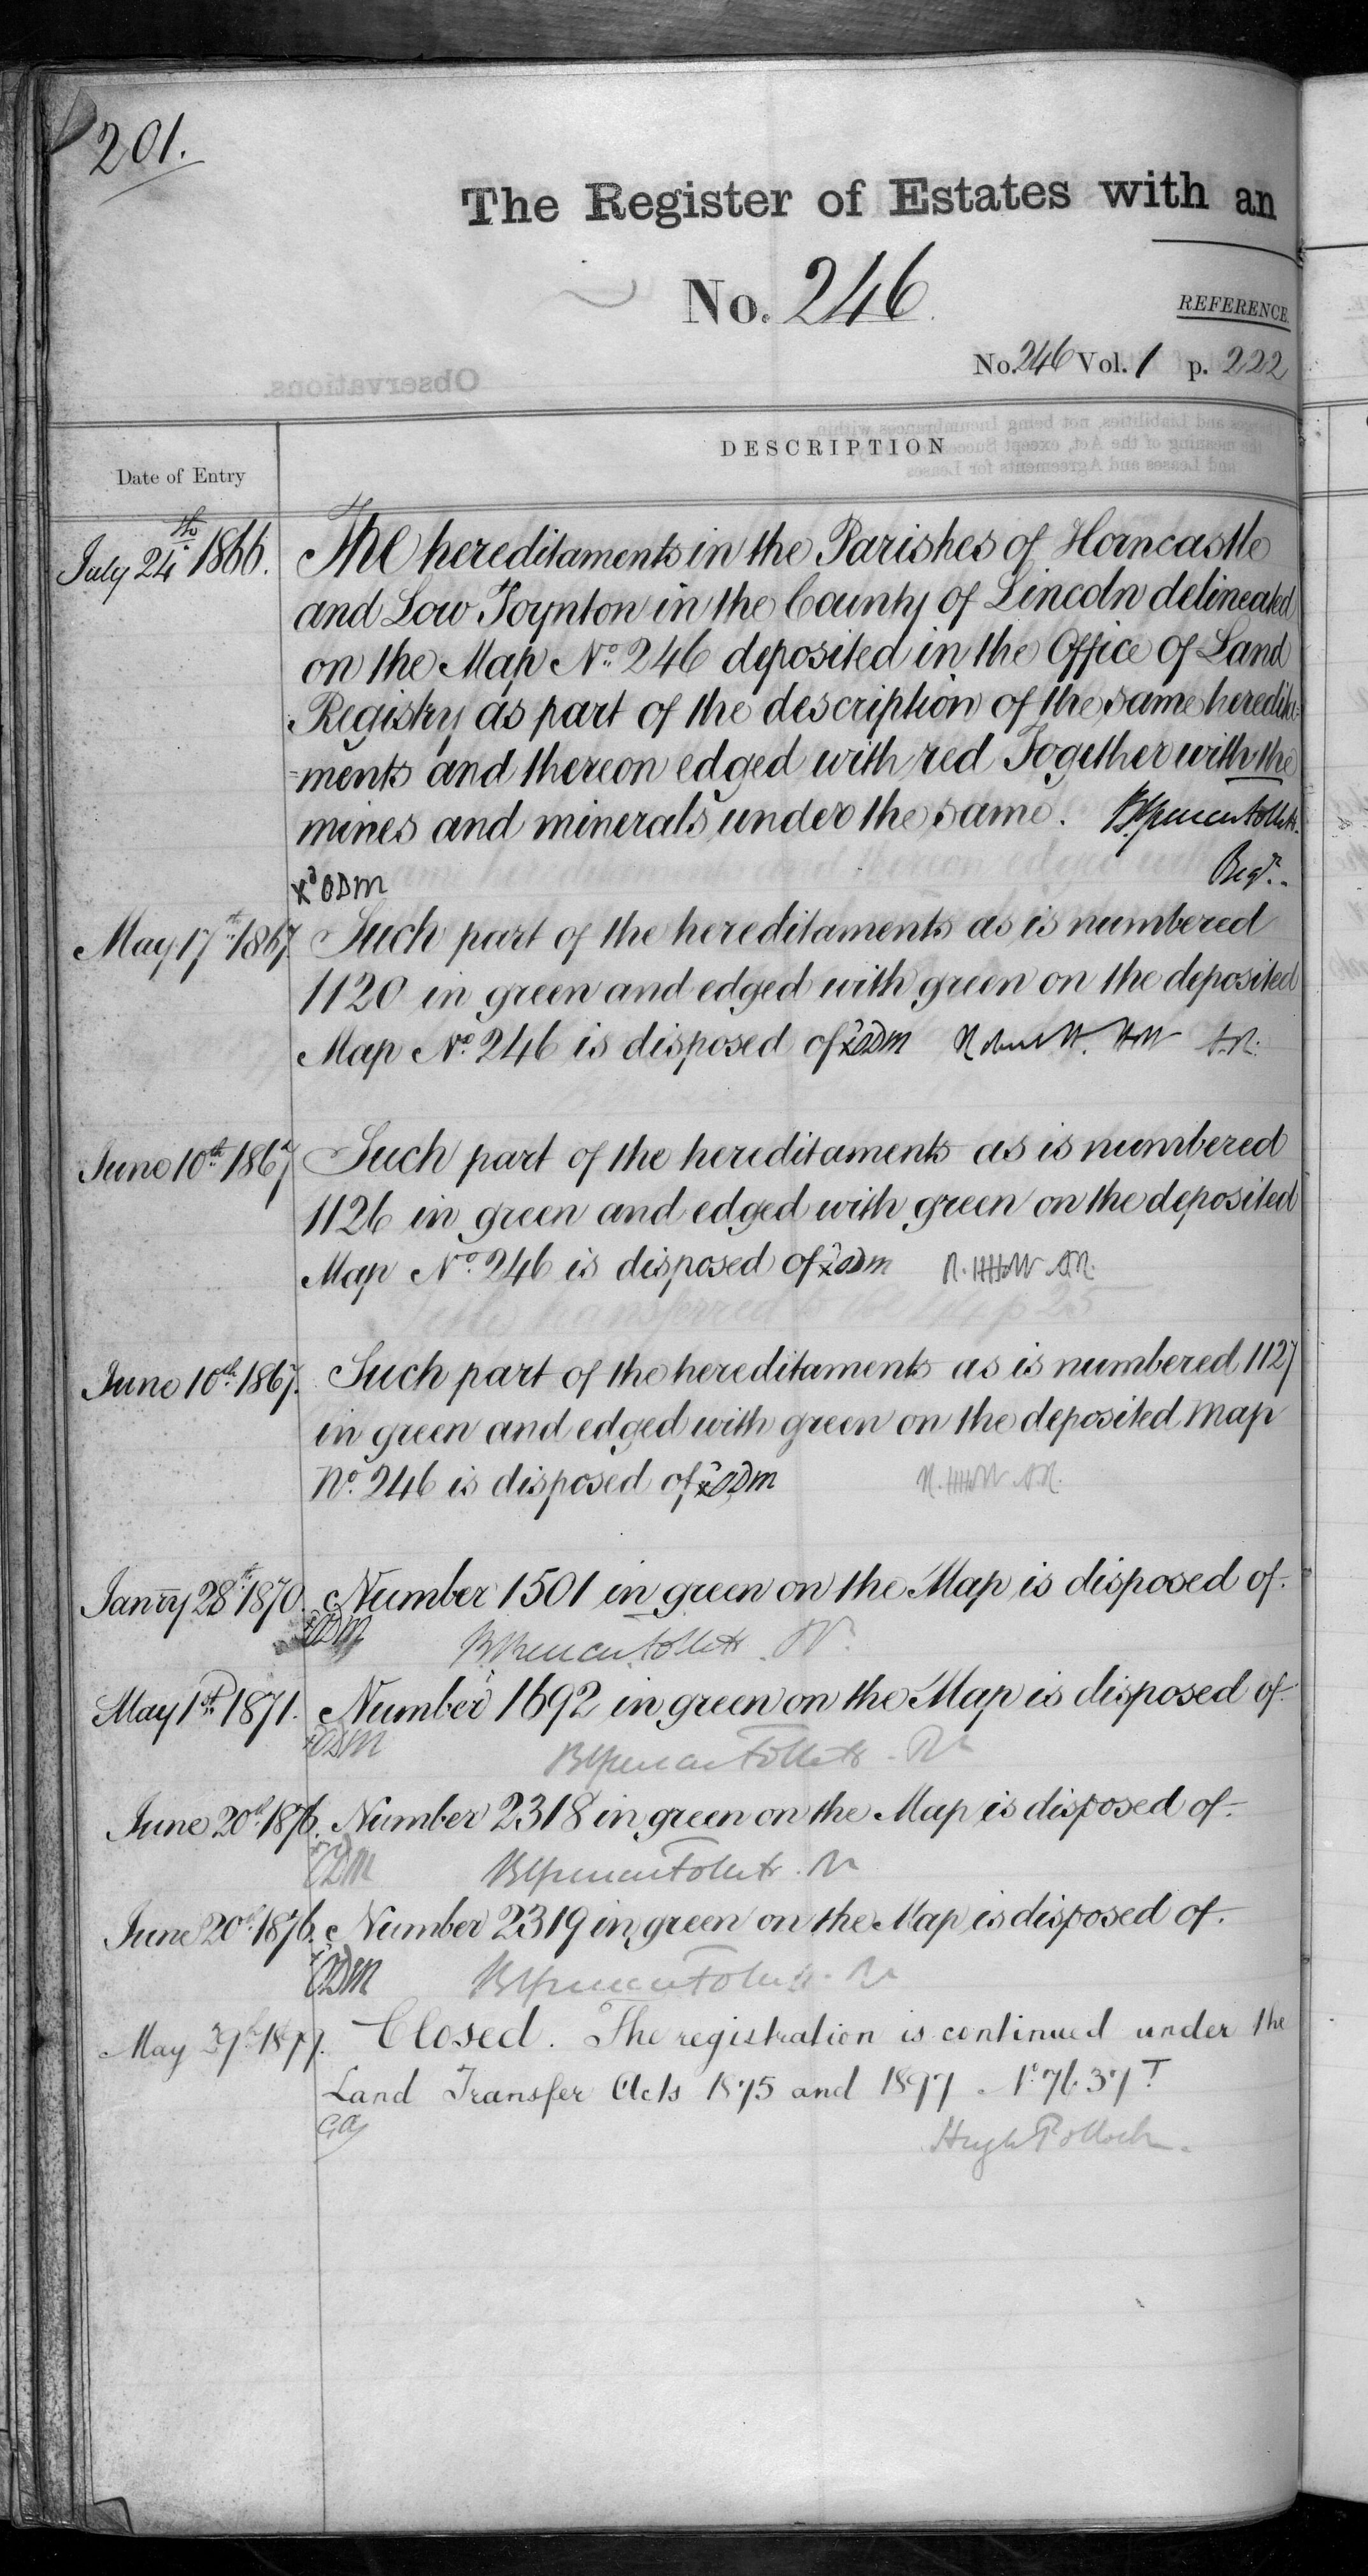 201.
The Register of Estates with an
No. 246.
REFERENCE.
No. 246 Vol. 1 p. 222
DESCRIPTION
Date of Entry
July 24th 1866. The hereditaments in the Parishes of Horncastle
and Low Toynton in the County of Lincoln delineated
on the Map No. 246 deposited in the Office of Land
Registry as part of the description of the same heredita=
=ments and thereon edged with red Together with the
mines and minerals under the same.
Regr.
May 17th 1867. Such part of the hereditaments as is numbered
1120 in green and edged with green on the deposited
Map No. 246 is disposed of
June 10th 1867 Such part of the hereditaments as is numbered
1126 in green and edged with green on the deposited
Map No. 246 is disposed of
June 10th 1867. Such part of the hereditaments as is numbered 1127
in green and edged with green on the deposited Map
No. 246 is disposed of
Janry 28th 1870. Number 1501 in green on the Map is disposed of.
May 1st 1871. Number 1692 in green on the Map is disposed of.
June 20th 1876. Number 2318 in green on the Map is disposed of.
June 20th 1876. Number 2319 in green on the Map is disposed of.
May Closed. The registration is continued under the
Land Transfer Acts 1875 and 1897.
Hugh Pollock.